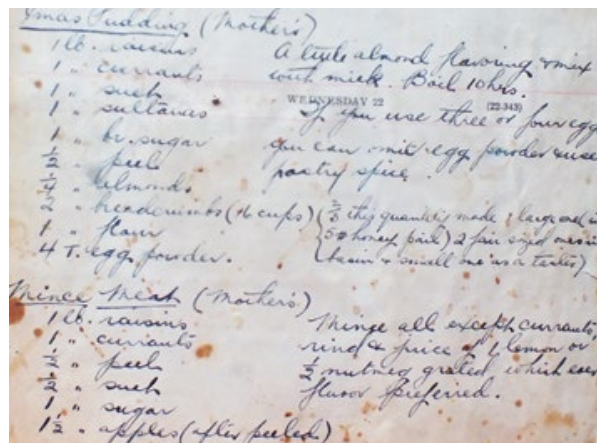 Xmas Pudding (Mother's)
1 lb. raisins
1 " currants
1 " suet
1 " sultanas
1 " br. sugar
1/2 " peel
" almonds
" breadcrumbs (16 cups)
1 " flour
4 T. egg powder.
A little almond flavoring & mix
with milk. Boil 10 hrs.
WEDNESDAY 22 (22-343)
If you use three or four egg
you can omit egg powder & use
pastry spice.
this quantity made 1 large one (in
5# honey pail) 2 fair sized ones in
basin & small one as a taster)
Mince Meat (Mother's)
1 lb. raisins
1 " currants
1/2 " peel
1/2 " suet
1 " sugar
1 1/2 " apples (after peeled)
Mince all except currants,
rind & juice of 1 lemon or
1/2 nutmeg grated which ever
flavor preferred.